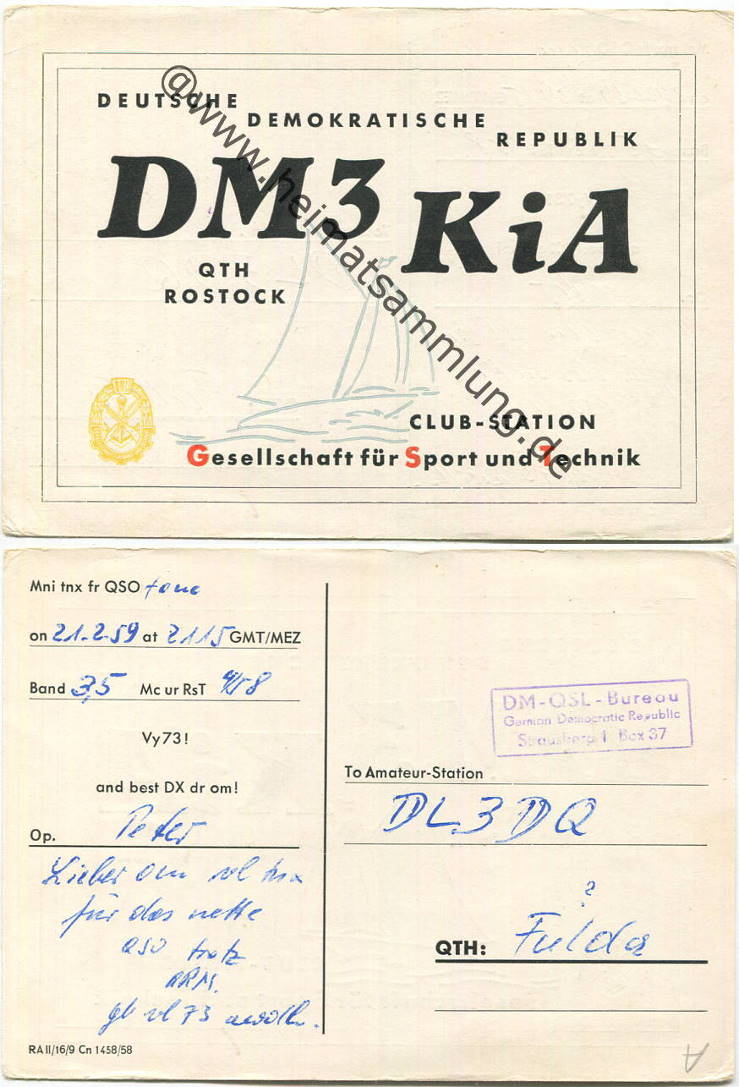 DEUTSCHE
DEMOKRATISCHE
REPUBLIK
DM3 KiA
QTH
ROSTOCK
CLUB-STATION
Gesellschaft für Sport und Technik
@www.heimatsammlung.de
Mni tnx fr QSO fone
on 21-2-59 at 2115 GMT/MEZ
Band 3,5 Mc ur RsT 4/58
Vy73!
and best DX dr om!
Op. Peter
Lieber om vl tnx
für das nette
QSO trotz
QRM.
gb vl 73
RA II/16/9 Cn 1458/58
DM-QSL-Bureau
German Democratic Republic
Strausberg 1 Box 37
To Amateur-Station
DL3DQ
?
QTH: Fulda
A